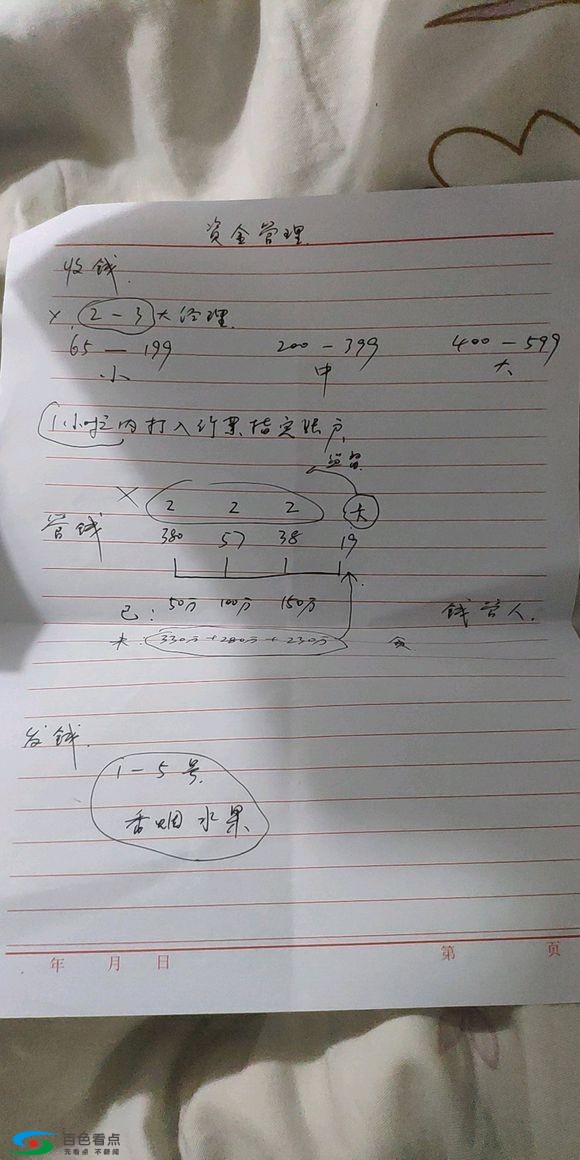 资金管理
收钱
× 2-3 大经理
65 — 199 200 - 399 400 - 599
小 中 大
1小时之内打入行业指定账户
监督
× 2 2 2 大
管钱 380 57 38 19
已: 50万 100万 150万 钱管人.
未: 330万+280万+230万
发钱.
1-5号
香烟 水果
年 月 日 第 页
百色看点
先看点 不新闻